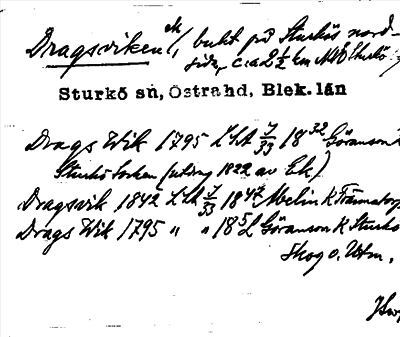 Dragsviken, bukt på Sturkös nord-
sida, c:a 2½ km NNO Sturkö
Sturkö sn, Östra hd, Blek. län
Drags Wik 1795 LSA 7/33 18 32 Göranson
Sturkö Socken (utdrag 1822 av Ek)
Dragsvik 1842 LSA 7/33 18 Melin K Tråmatorp
Drags Wik 1795 " " 18 Göranson K Sturkö
Skog o. Utm.